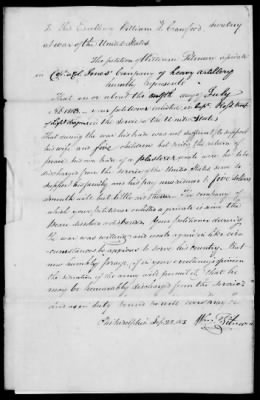 To His Excellency William H. Crawford, secretary
at war of the United States
The petition of William Pitman a private
in Captain Jones' Company of heavy artillery
humbly represents
That on or about the twelfth day of July
AD 1813 your petitioner enlisted in Capt
of Light Dragoons in the service of the United States
That during the war his trade was not sufficient to support
his wife and five children but since the return of
peace his own trade of a plasterer would were he to be
discharged from the service of the United States serve to
support his family and his pay now reduced to five dollars
a month will but little aid them. The company of
which your petitioner enlisted a private is since the
Peace dissolved Your petitioner during
the war was willing and would again in like
circumstances be to serve his country. But
now humbly prays, if in your excellency's opinion
the situation of the army will permit it that he
may be honorably discharged from the service
and as in duty bound he will ever pray &c
Philadelphia Sep. 22, 1815 Wm. Pitman